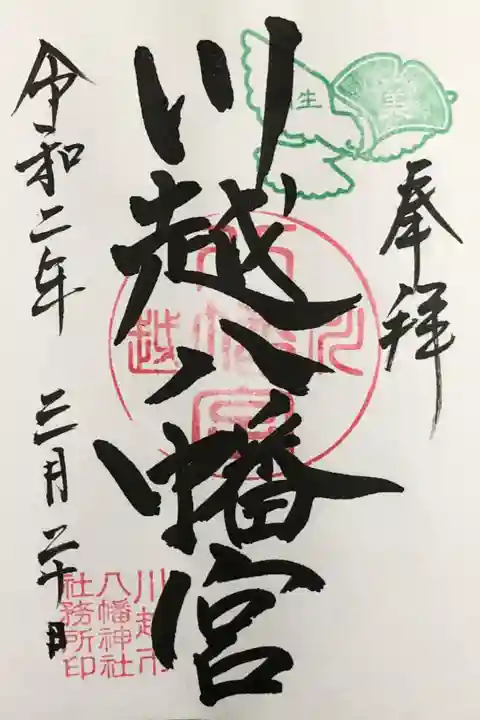 奉拝
川越八幡宮
令和二年 三月二十日
川越
八幡宮
川越市
八幡神社
社務所印
生
実